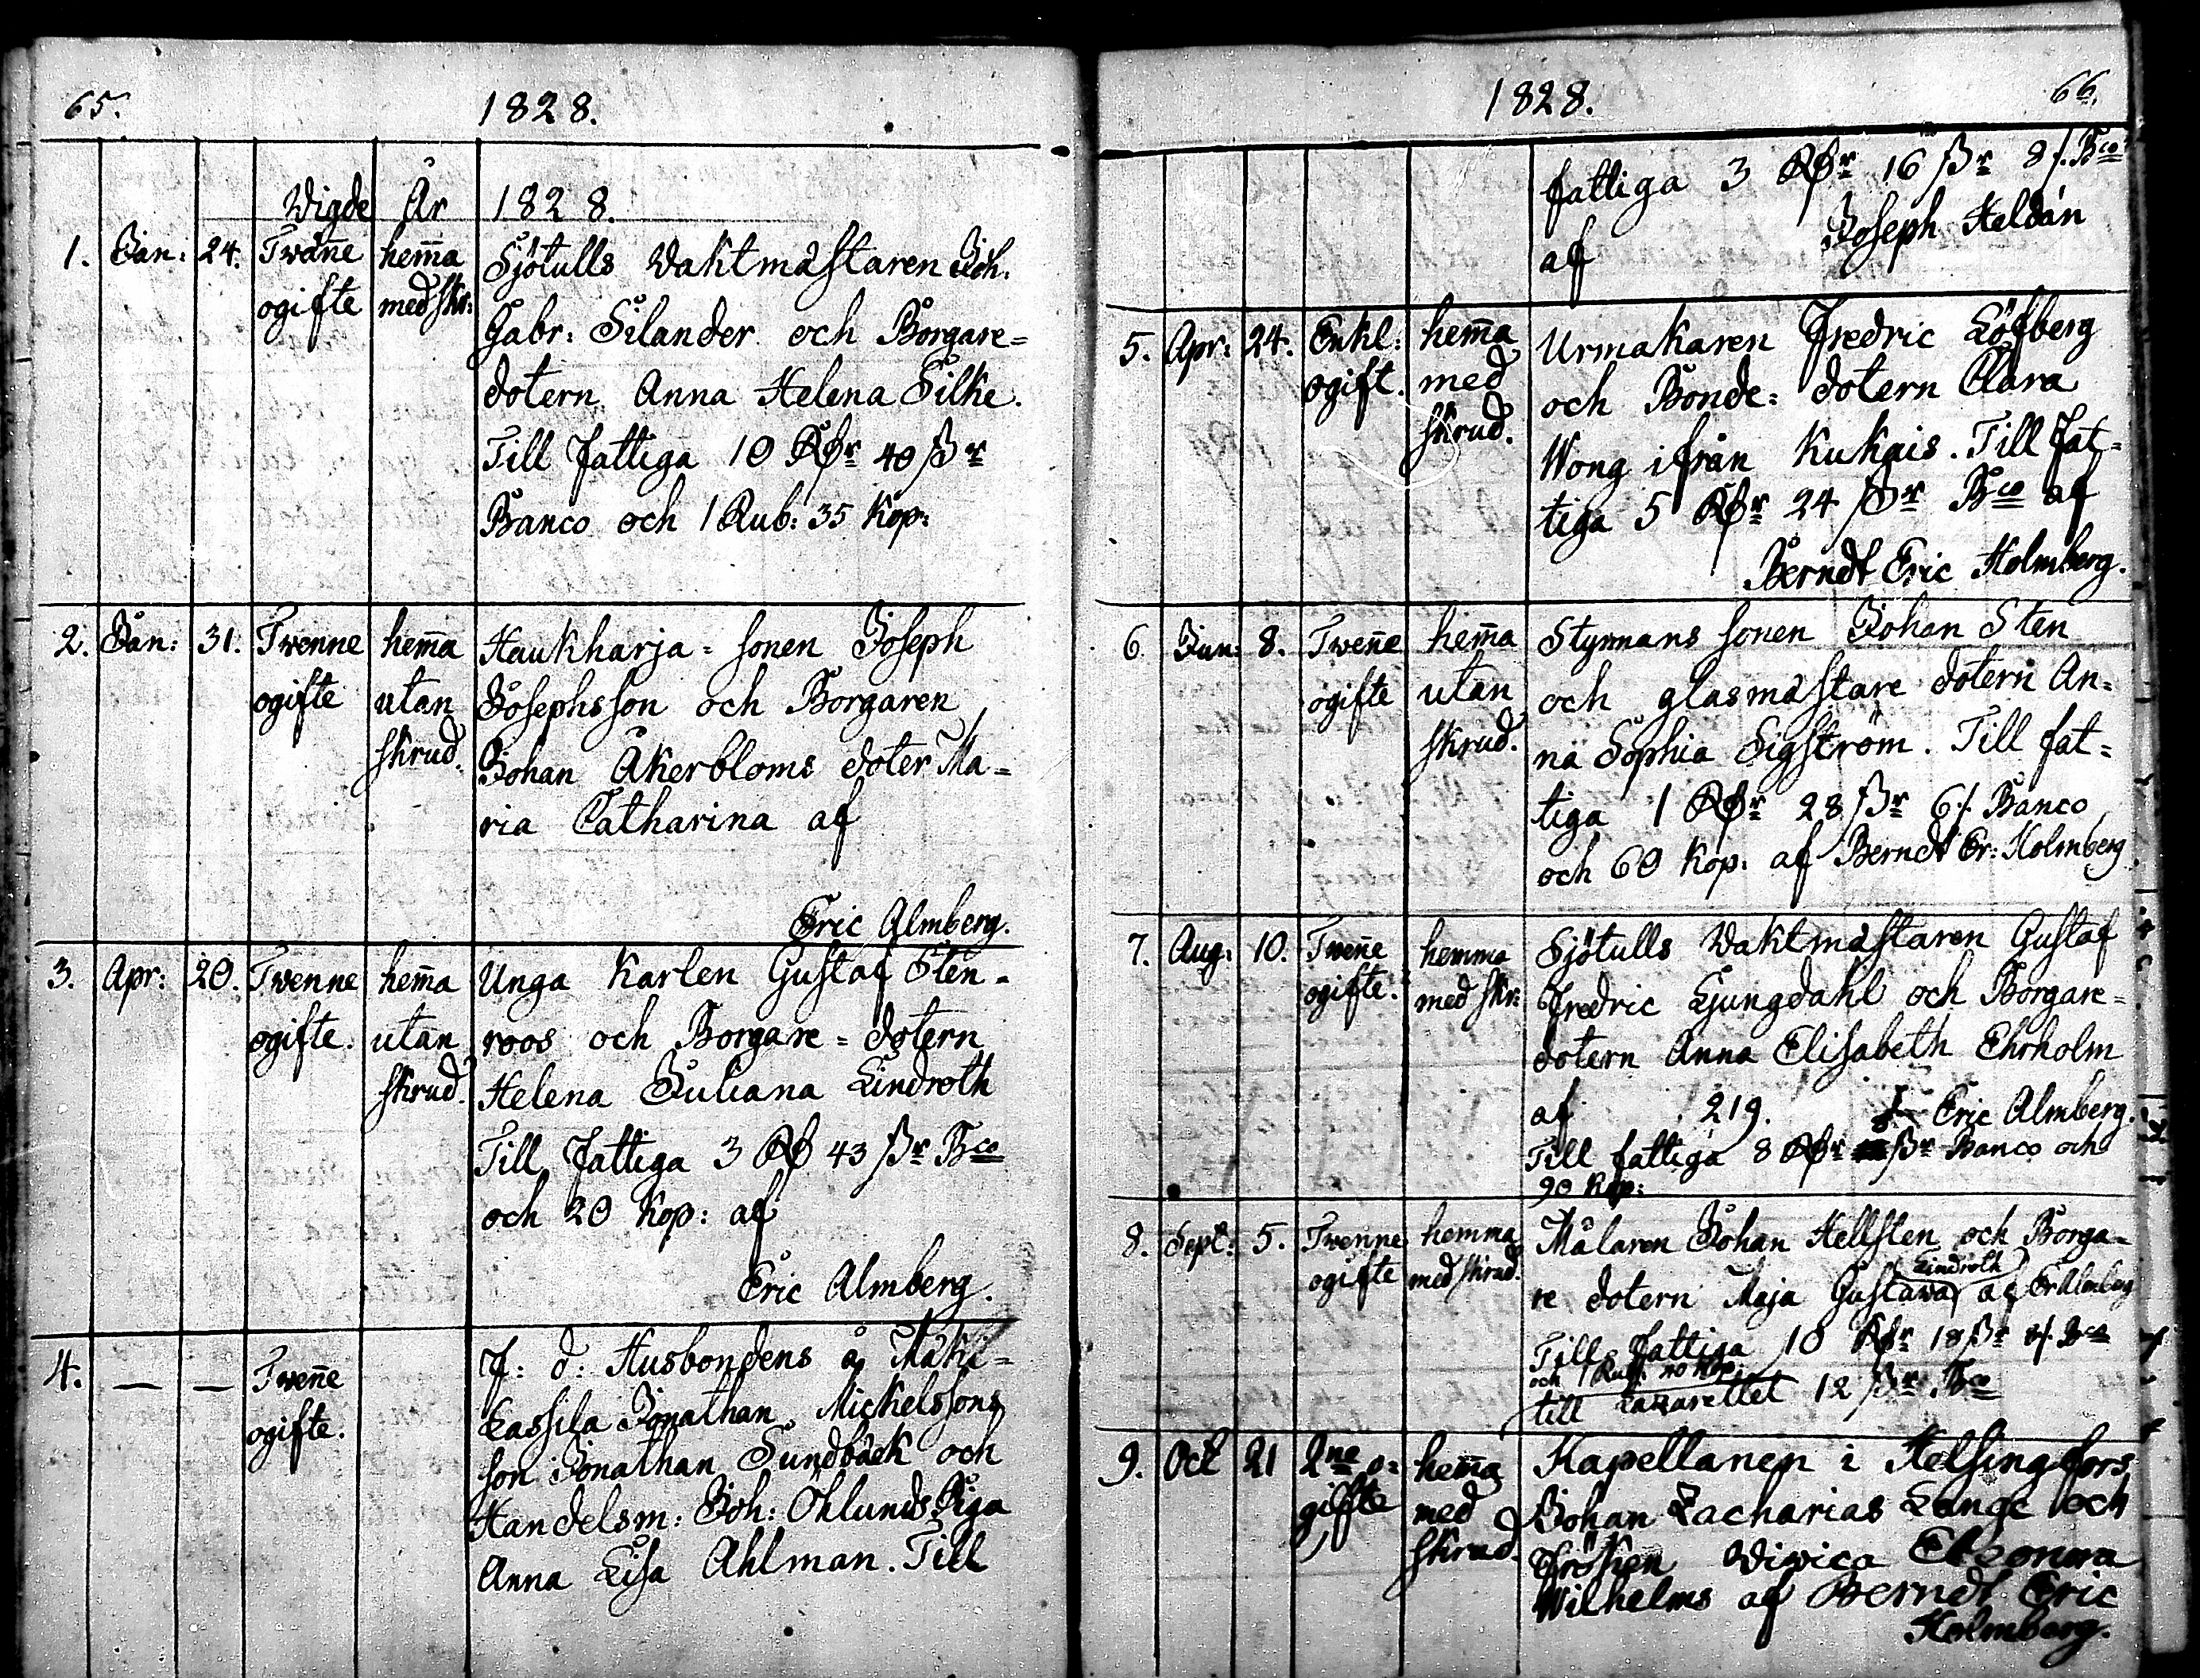 65.
1828.
Wigde År 1828.
1. Jan: 24. Twänne hem̄a Sjötulls Waktmästaren Joh.
ogifte med skr: Gabr: Silander och Borgare=
dotern Anna Helena Silke.
Till Fattiga 10 Rdr 40 ßr
Banco och 1 Rub: 35 Kop:
2. Jan: 31. Twenne hem̄a Haukharja=sonen Joseph
ogifte utan Josephsson och Borgaren
skrud. Johan Åkerbloms doter Ma=
ria Catharina af
Eric Almberg.
3. Apr: 20. Twenne hem̄a Unga Karlen Gustaf Sten=
ogifte. utan roos och Borgare=dotern
skrud. Helena Juliana Lindroth
Till Fattiga 3 Rd 43 ßr Bco
och 20 Kop: af
Eric Almberg.
4. — — Twen̄e F: d: Husbondens å Mäki=
ogifte. Lassila Jonathan Mickelssons
son Jonathan Sundbäck och
Handelsm: Joh: Öhlunds Piga
Anna Lisa Ahlman. Till
1828.
66.
fattiga 3 Rdr 16 ßr 8 f. Bco
af Joseph Heldán
5. Apr: 24. Enkl: hem̄a Urmakaren Fredric Löfberg
ogift. med och Bonde=dotern Clara
skrud. Wong ifrån Kukais. Till Fat=
tiga 5 Rdr 24 ßr Bco af
Berndt Eric Holmberg.
6. Jun: 8. Twen̄e hem̄a Styrmans sonen Johan Sten
ogifte utan och glasmästare dotern An=
skrud. na Sophia Sigström. Till fat=
tiga 1 Rdr 28 ßr 6 f. Banco
och 60 Kop: af Berndt Er: Holmberg
7. Aug: 10. Twen̄e hemma Sjötulls Waktmästaren Gustaf
ogifte. med skr: Fredric Ljungdahl och Borgare=
dotern Anna Elisabeth Ehrholm
af 219. Eric Almberg.
Till fattiga 8 Rdr ßr Banco och
90 Kop:
8. Sept: 5. Twenne hemma Målaren Johan Hellsten och Borga=
ogifte med skrud. re dotern Maja Gustawa Lindroth af Er Almberg
Till Fattiga 10 Rdr 18 ßr f. Bco
och 1 Rub.
till Lazarettet 12 ßr Bco
9. Oct 21 2ne o= hem̄a Kapellanen i Helsingfors
gifte med Johan Zacharias Lange och
skrud. Fröken Wiwica Eleonora
Wilhelms af Berndt Eric
Holmberg.